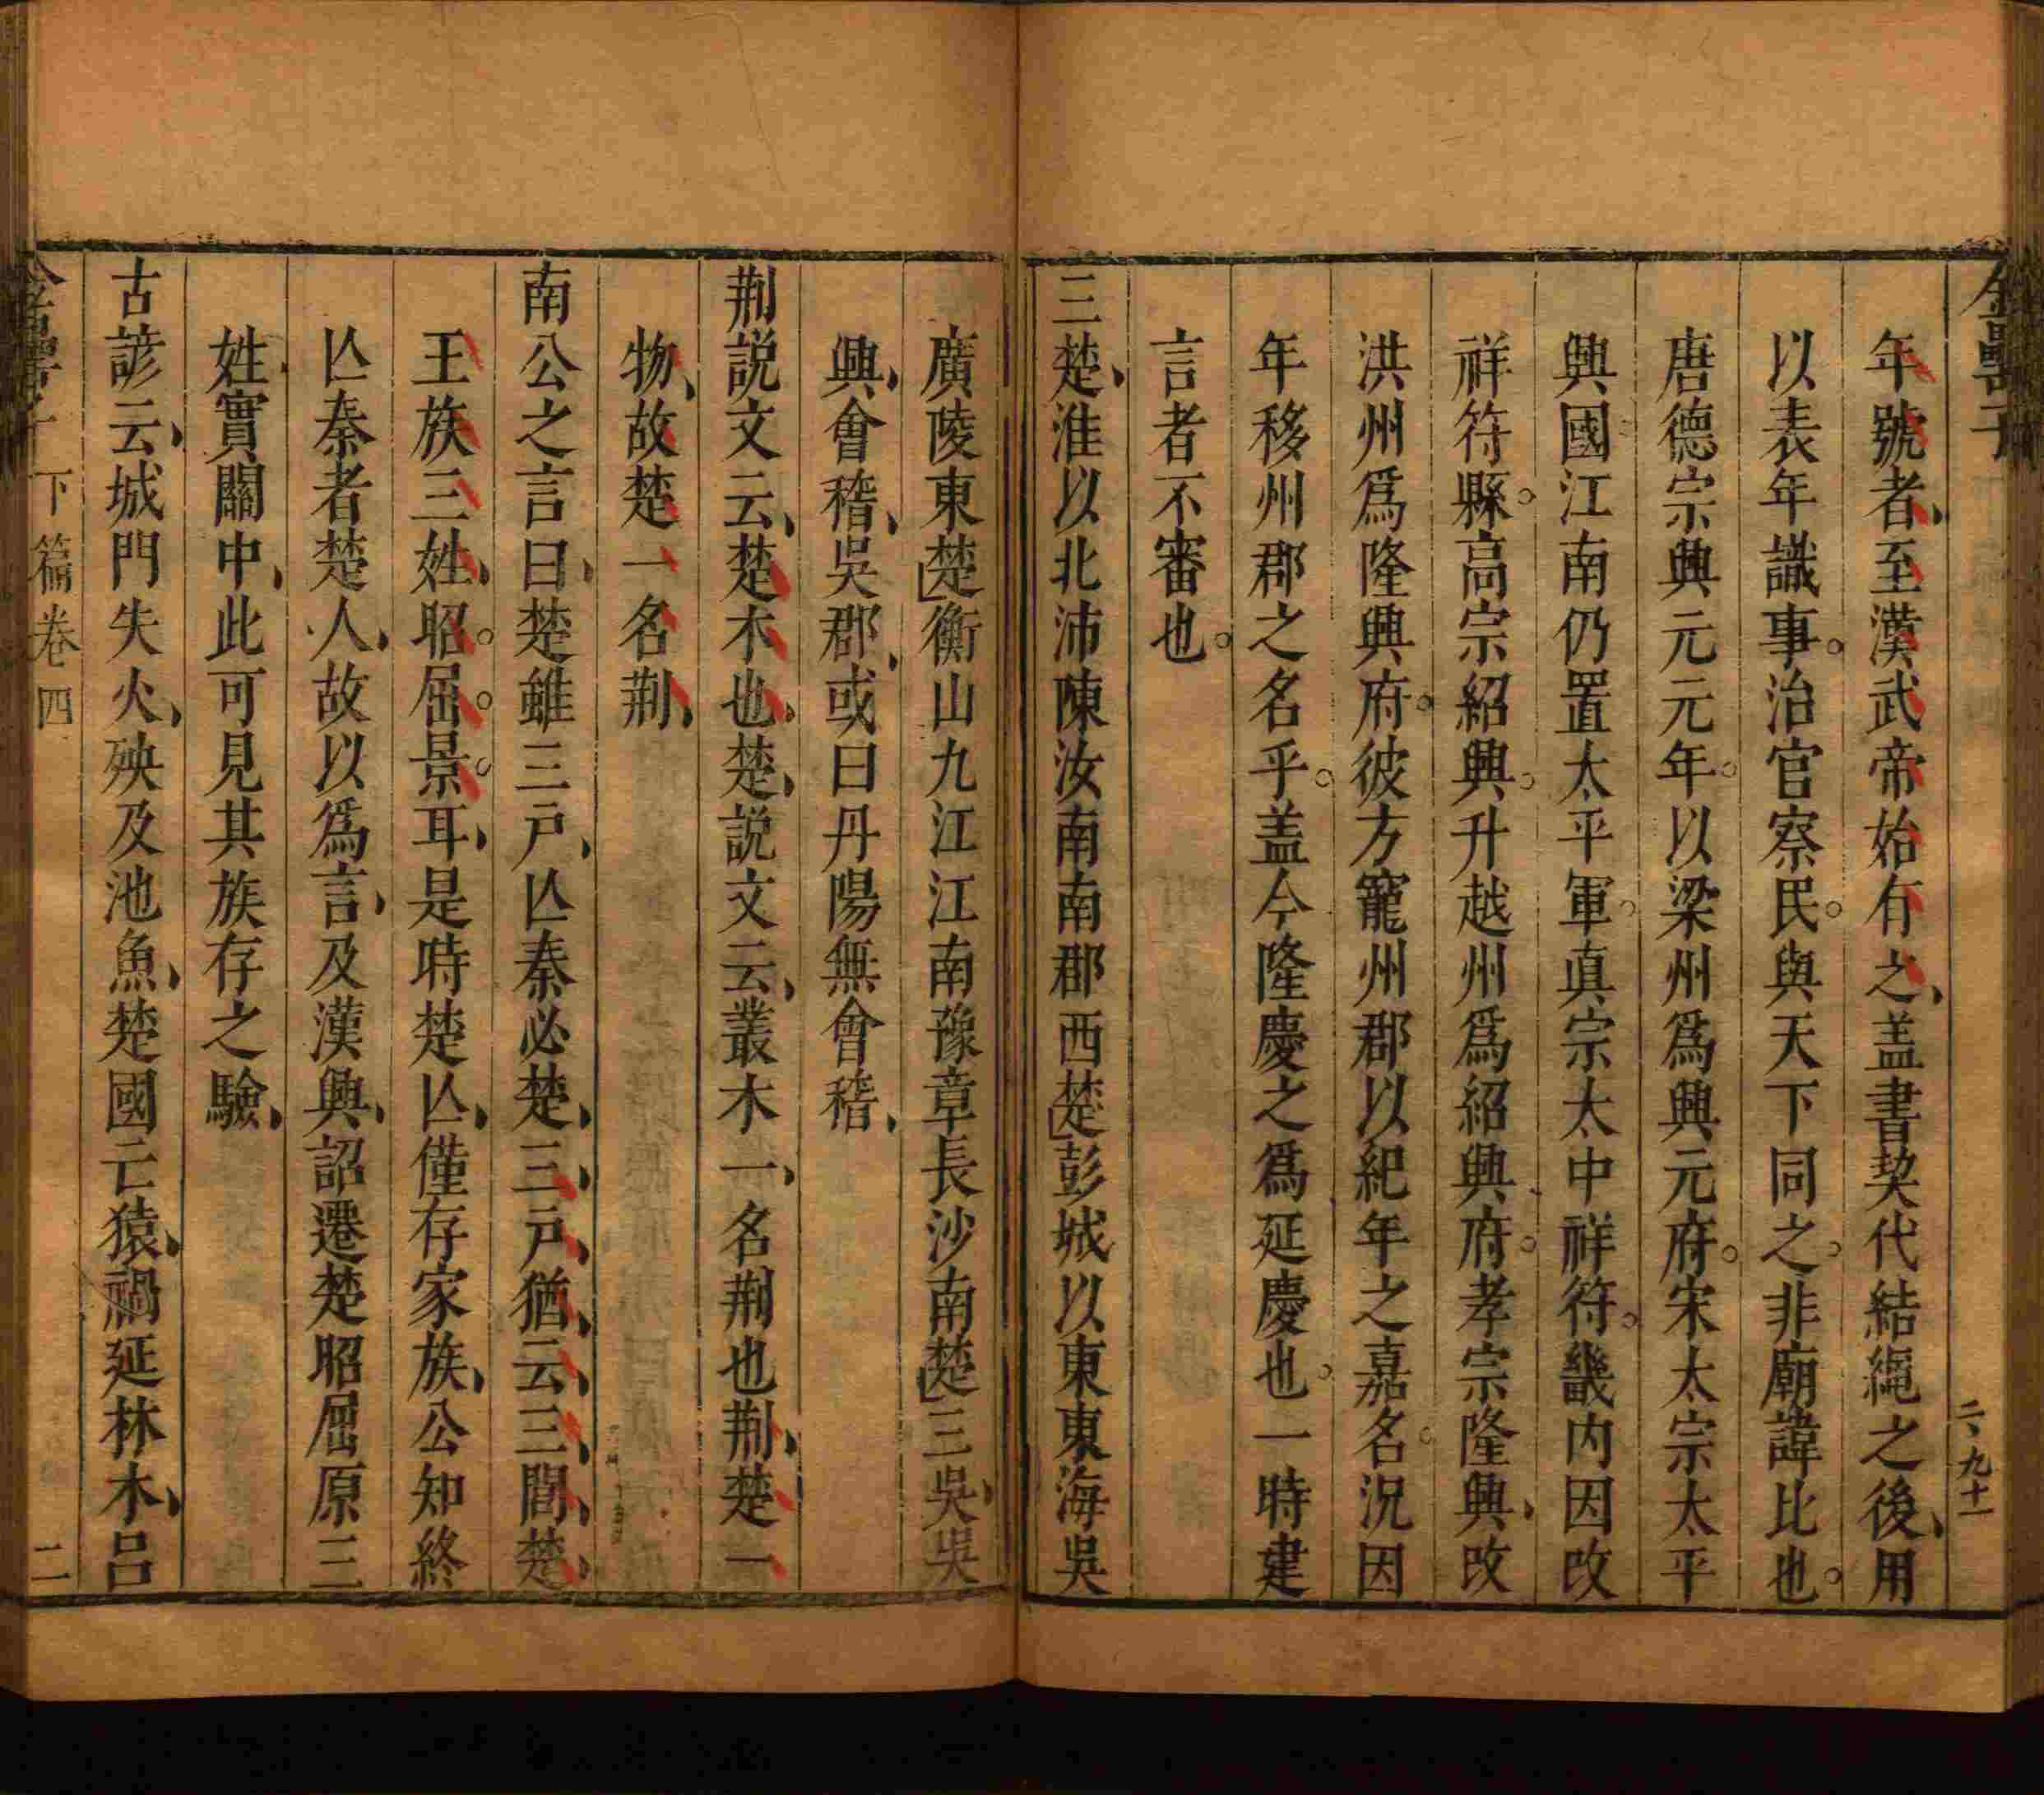 金罍子
二、九十一
年號者至漢武帝始有之盖書契代結繩之後用
以表年識事治官察民與天下同之非廟諱比也
唐德宗興元元年以梁州爲興元府宋太宗太平
興國江南仍置太平軍真宗大中祥符畿内因改
祥符縣高宗紹興升越州爲紹興府孝宗隆興改
洪州爲隆興府彼方寵州郡以紀年之嘉名況因
年移州郡之名乎盖今隆慶之爲延慶也一時建
言者不審也
三楚淮以北沛陳汝南南郡西楚彭城以東東海吳
廣陵東楚衡山九江江南豫章長沙南楚三吳吳
興會稽吳郡或曰丹陽無會稽
荆説文云楚木也楚説文云叢木一名荆也荆楚一
物故楚一名荆
南公之言曰楚雖三戸亾秦必楚三戸猶云三閭楚
王族三姓昭屈景耳是時楚亾僅存家族公知終
亾秦者楚人故以爲言及漢興詔遷楚昭屈原三
姓實關中此可見其族存之驗
古諺云城門失火殃及池魚楚國亡猿禍延林木吕
下篇卷四
二